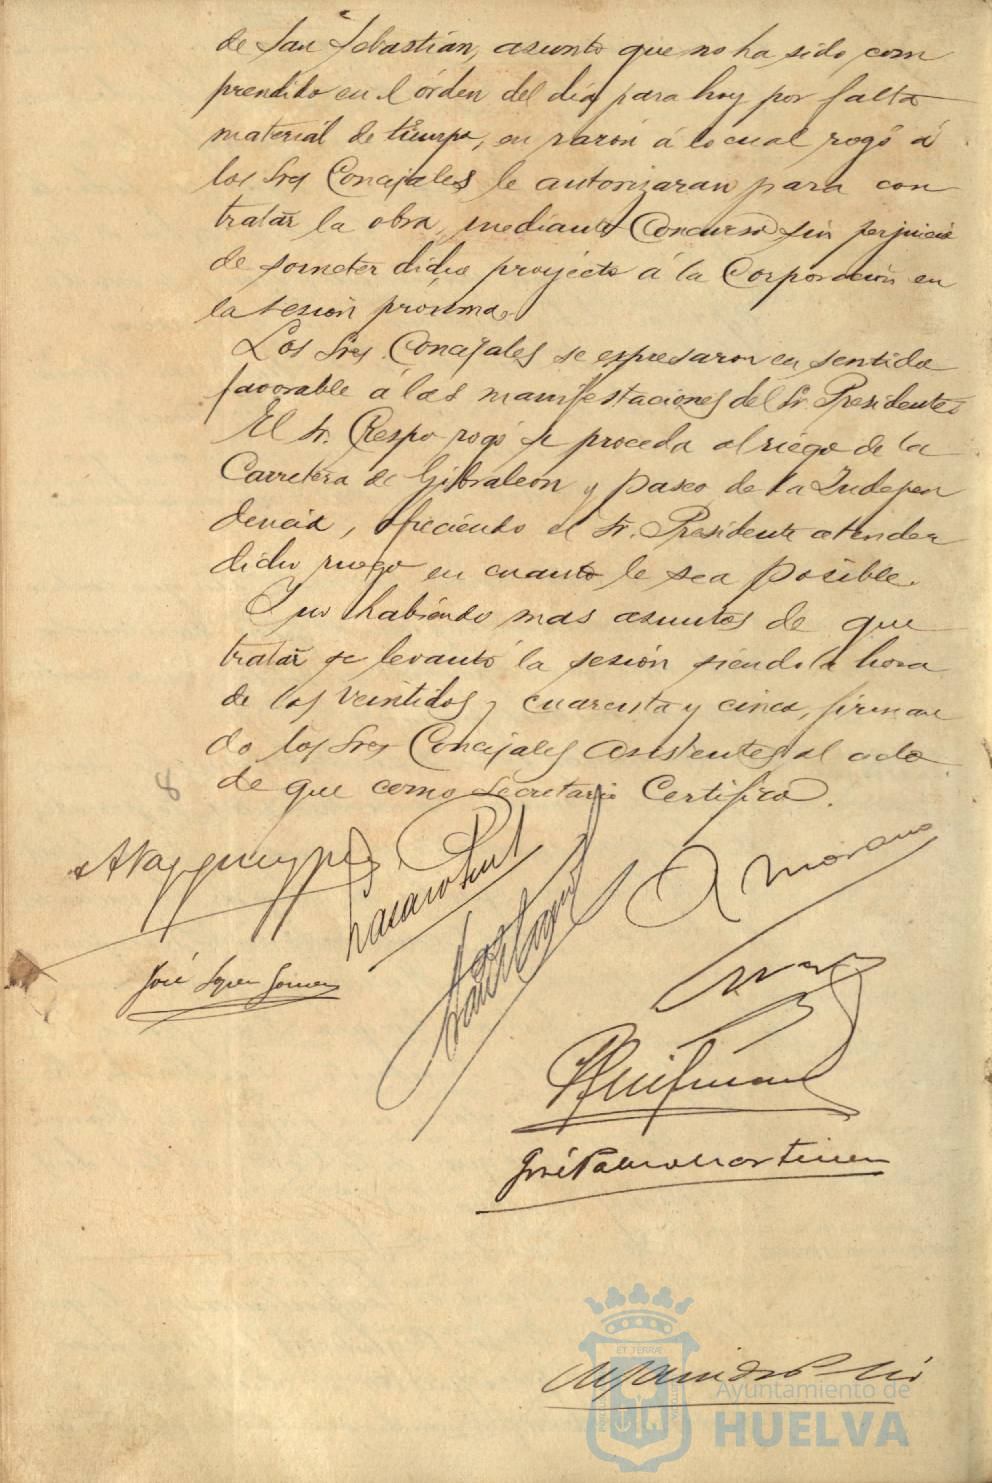 de San Sebastián, asunto que no ha sido com
prendido en el órden del dia para hoy por falta
material de tiempo, en razón á lo cual rogó á
los Sres Concejales le autorizaran para con
tratar la obra, mediante Concurso sin perjuicio
de someter dicho proyécto á la Corporación en
la sesión próxima.
Los Sres Concejales se expresaron en sentido
favorable á las manifestaciones del Sr. Presidente.
El Sr. Crespo rogó se proceda al riego de la
Carretera de Gibraleón y paseo de la Indepen
dencia, ofreciendo el Sr. Presidente atender
dicho ruego en cuanto le sea posible.
Y no habiendo mas asuntos de que
tratar se levantó la sesión siendo la hora
de las veintidos y cuarenta y cinco, firman
do los Sres Concejales asistentes al acto
de que como Secretario Certifico.
8
A Moreno
José López Gómez
José Palma Martínez
ET TERRÆ
Ayuntamiento de
HUELVA